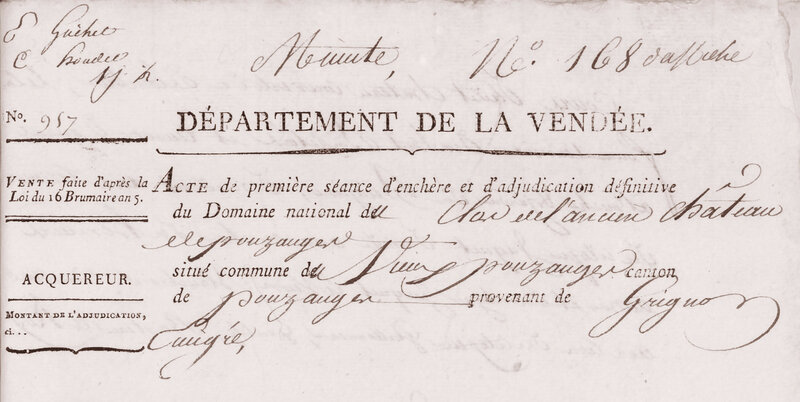 Minute, N.° 168 d'affiche
N.° 957
DÉPARTEMENT DE LA VENDÉE.
VENTE faite d'après la
Loi du 16 Brumaire an 5.
ACQUEREUR.
MONTANT DE L'ADJUDICATION,
ci...
ACTE de première séance d'enchère et d'adjudication définitive
du Domaine national du Clos de l'ancien Château
de pouzauges
situé commune du Vieux pouzauges canton
de pouzauges provenant de Grignon
Emigré,